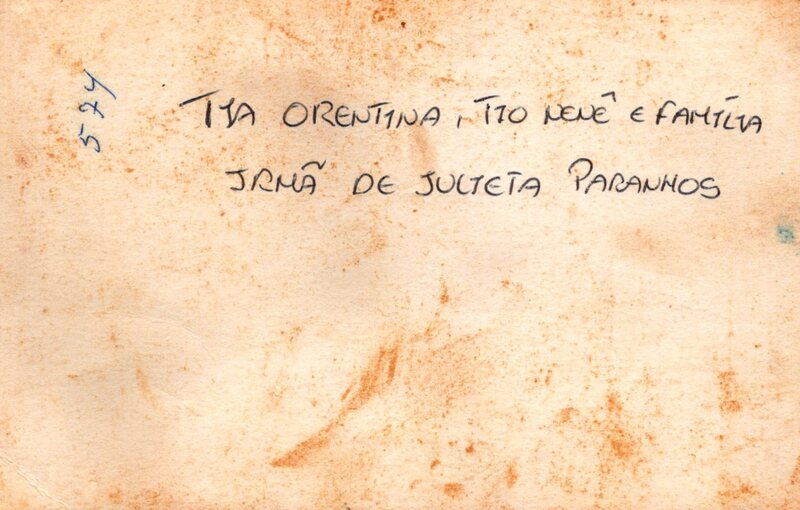 574
TIA ORENTINA, TIO NENÊ E FAMÍLIA
IRMÃ DE JULIETA PARANHOS